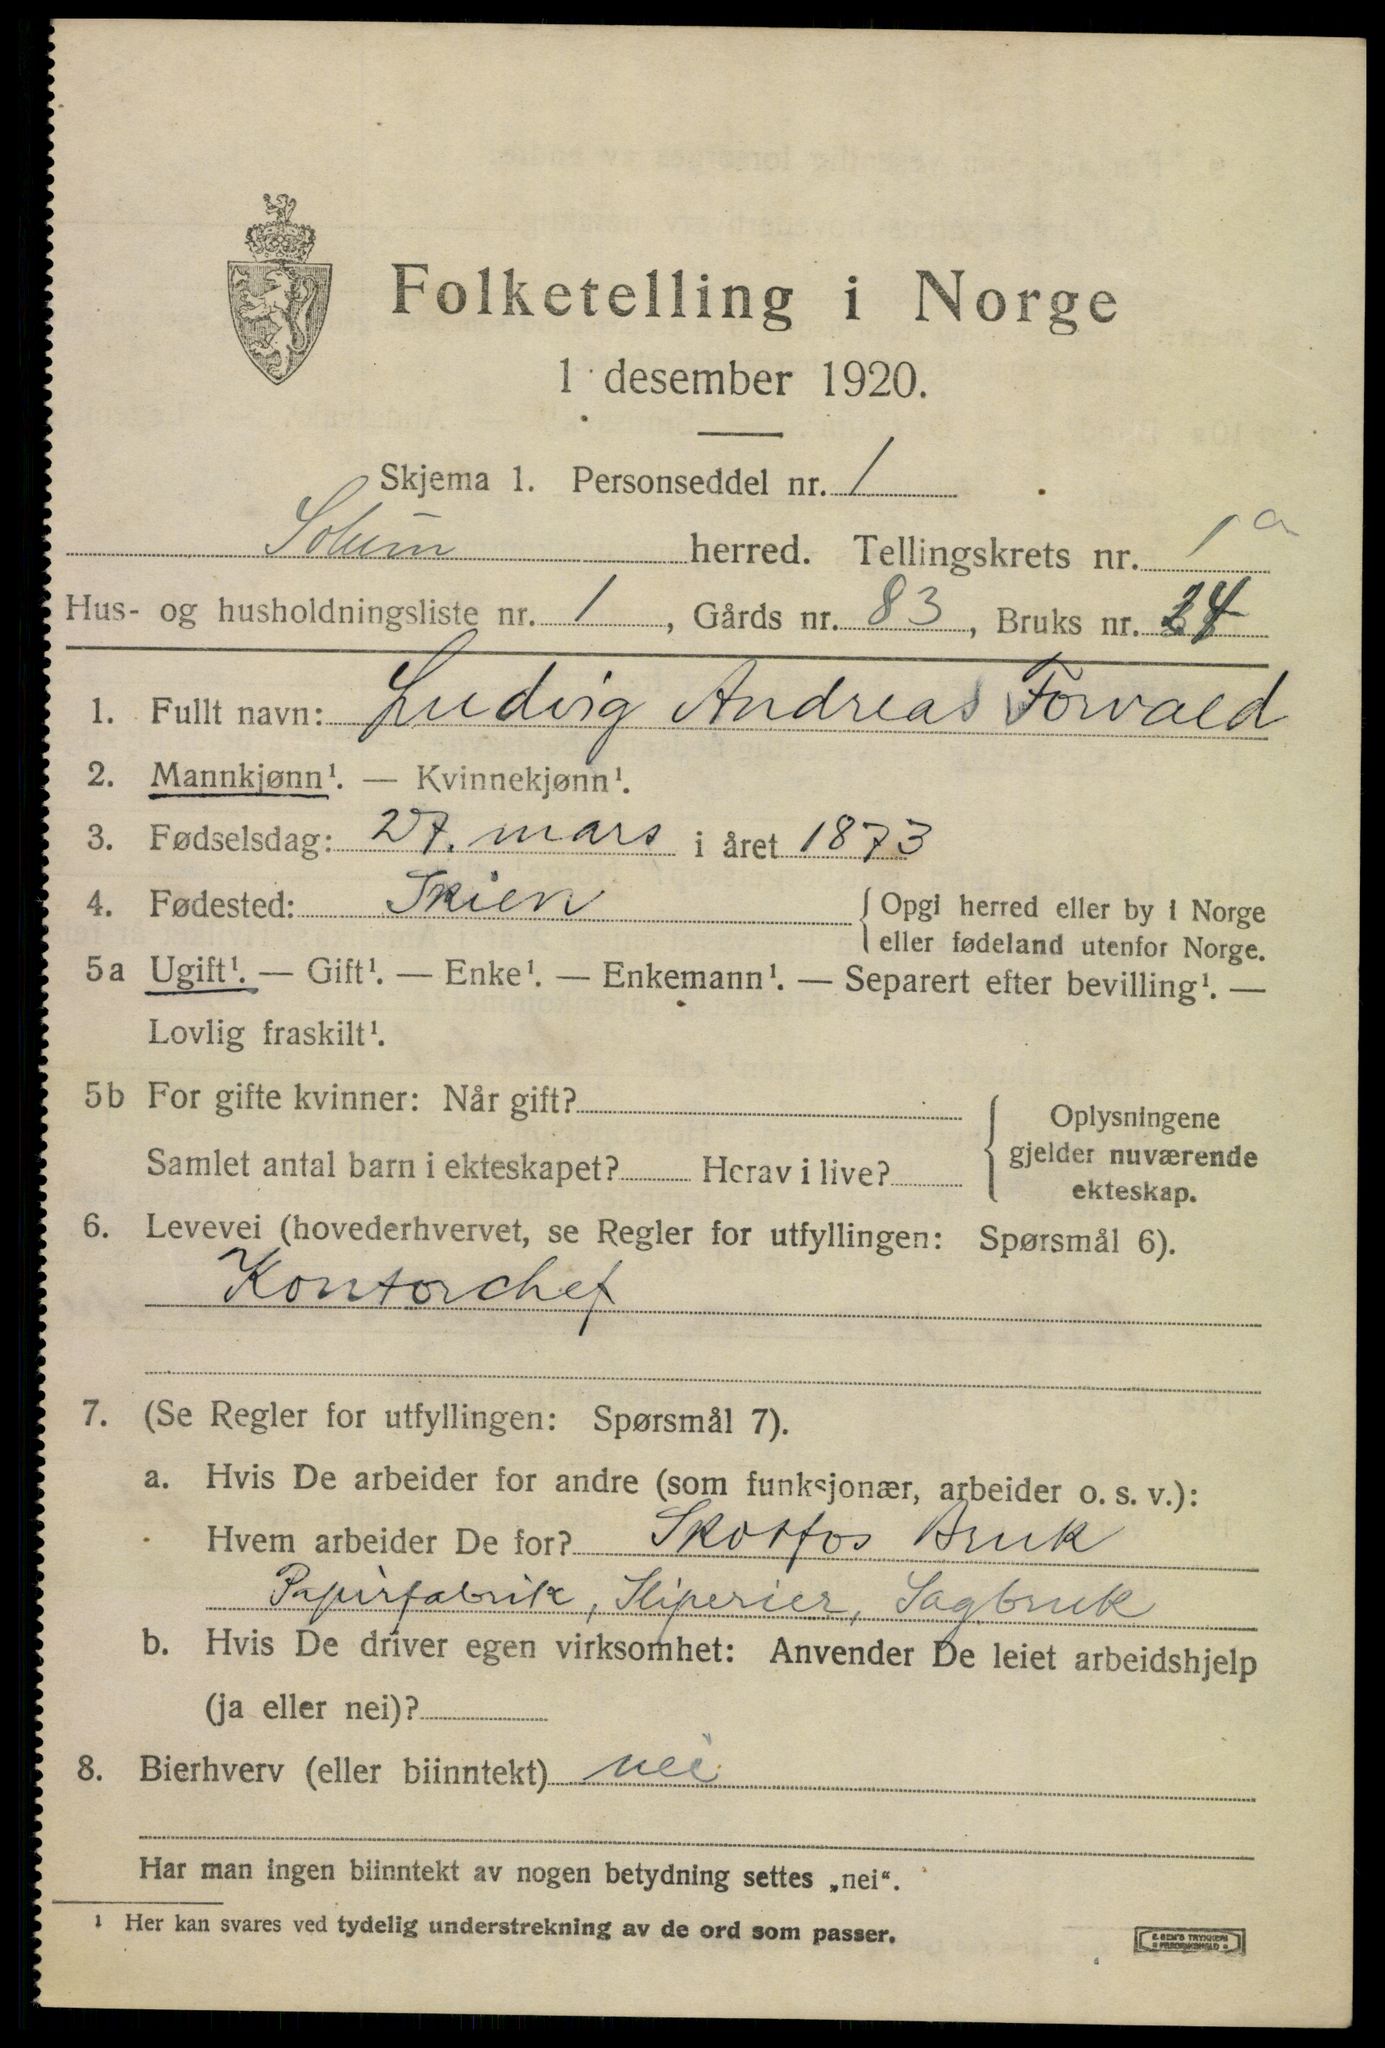 Folketelling i Norge
1 desember 1920.
Skjema 1. Personseddel nr. 1
Solum herred. Tellingskrets nr. 1a
Hus- og husholdningsliste nr. 1, Gårds nr. 83, Bruks nr. 24
1. Fullt navn: Ludvig Andreas Forvald
2. Mannkjønn¹. — Kvinnekjønn¹.
3. Fødselsdag: 27. mars i året 1873
4. Fødested: Skien { Opgi herred eller by i Norge
eller fødeland utenfor Norge.
5a Ugift¹. — Gift¹. — Enke¹. — Enkemann¹. — Separert efter bevilling¹. —
Lovlig fraskilt¹.
5b For gifte kvinner: Når gift?
Samlet antal barn i ekteskapet? Herav i live?
{ Oplysningene
gjelder nuværende
ekteskap.
6. Levevei (hovederhvervet, se Regler for utfyllingen: Spørsmål 6).
Kontorchef
7. (Se Regler for utfyllingen: Spørsmål 7).
a. Hvis De arbeider for andre (som funksjonær, arbeider o. s. v.):
Hvem arbeider De for? Skotfos Bruk
Papirfabrik, Sliperier, Sagbruk
b. Hvis De driver egen virksomhet: Anvender De leiet arbeidshjelp
(ja eller nei)?
8. Bierhverv (eller biinntekt) nei
Har man ingen biinntekt av nogen betydning settes „nei“.
¹ Her kan svares ved tydelig understrekning av de ord som passer.